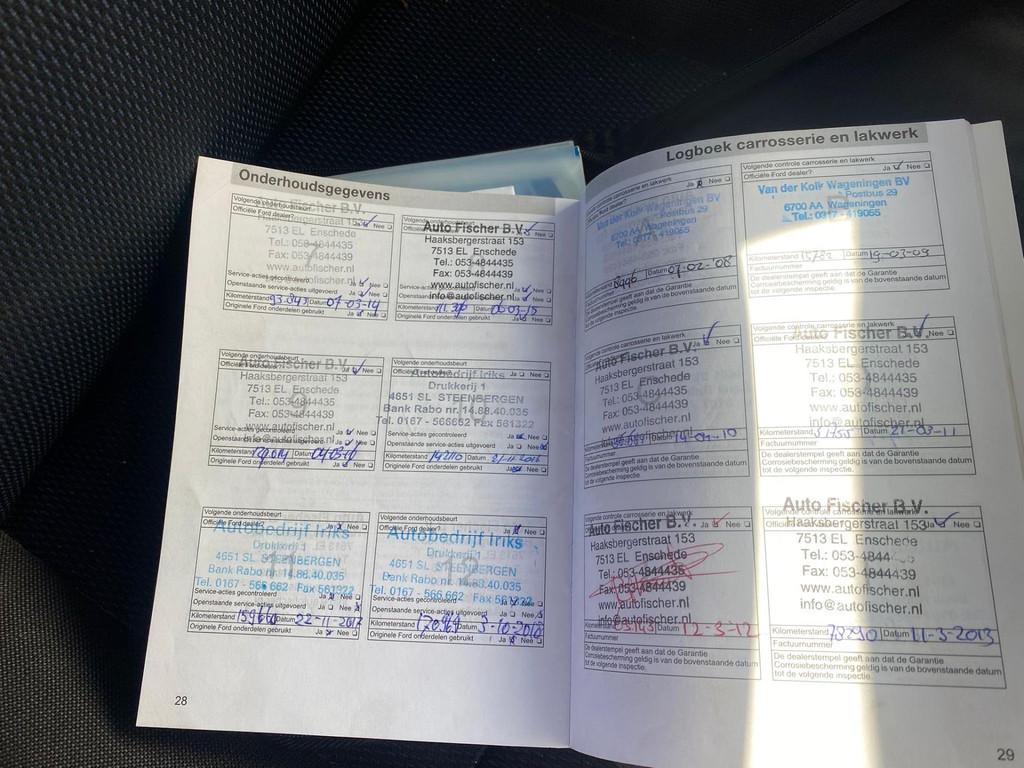 Onderhoudsgegevens
Volgende onderhoudsbeurt
Officiële Ford dealer? Ja Nee
Fischer B.V.
7513 EL Enschede
Tel.: 053-4844435
www.autofischer.nl
Service-acties gecontroleerd Ja Nee
Openstaande service-acties uitgevoerd Ja Nee
Kilometerstand 93343 Datum 07-03-14
Originele Ford onderdelen gebruikt Ja Nee
Auto Fischer B.V.
Haaksbergerstraat 153
7513 EL Enschede
Tel.: 053-4844435
Fax: 053-4844439
www.autofischer.nl
info@autofischer.nl
Kilometerstand Datum
Originele Ford onderdelen gebruikt Ja Nee
Volgende onderhoudsbeurt
Officiële Ford dealer? Nee
Auto Fischer B.V.
Haaksbergerstraat 153
7513 EL Enschede
Tel.: 053-4844435
Fax: 053-4844439
www.autofischer.nl
info@autofischer.nl
Service-acties gecontroleerd Ja Nee
Kilometerstand Datum
Originele Ford onderdelen gebruikt Ja Nee
Volgende onderhoudsbeurt
Officiële Ford dealer? Ja Nee
Autobedrijf Iriks
Drukkerij 1
4651 SL STEENBERGEN
Bank Rabo nr. 14.88.40.035
Tel. 0167 - 566662 Fax 561322
Service-acties gecontroleerd Ja Nee
Openstaande service-acties uitgevoerd Ja Nee
Kilometerstand 142110 Datum
Originele Ford onderdelen gebruikt Ja Nee
Volgende onderhoudsbeurt
Officiële Ford dealer? Ja Nee
Autobedrijf Iriks
Drukkerij 1
4651 SL STEENBERGEN
Bank Rabo nr. 14.88.40.035
Tel. 0167 - 566 662 Fax 561322
Service-acties gecontroleerd Ja Nee
Openstaande service-acties uitgevoerd Ja Nee
Kilometerstand Datum 22-11-2017
Originele Ford onderdelen gebruikt Ja Nee
Volgende onderhoudsbeurt
Officiële Ford dealer? Ja Nee
Autobedrijf Iriks
Drukkerij 1
4651 SL STEENBERGEN
Bank Rabo nr. 14.88.40.035
Tel. 0167 - 566 662 Fax 561322
Service-acties gecontroleerd Ja Nee
Openstaande service-acties uitgevoerd Ja Nee
Kilometerstand Datum 3-10-2018
Originele Ford onderdelen gebruikt Ja Nee
28
Logboek carrosserie en lakwerk
Ja Nee
Van der Kolk Wageningen BV
Postbus 29
6700 AA Wageningen
Tel.: 0317 - 419065
8996 Datum 07-02-'08
Factuurnummer
De dealerstempel geeft aan dat de Garantie
Corrosiebescherming geldig is van de bovenstaande datum
tot de volgende inspectie.
Volgende controle carrosserie en lakwerk
Officiële Ford dealer? Ja Nee
Van der Kolk Wageningen BV
Postbus 29
6700 AA Wageningen
Tel.: 0317 - 419065
Kilometerstand 15782 Datum 19-03-09
Factuurnummer
De dealerstempel geeft aan dat de Garantie
Corrosiebescherming geldig is van de bovenstaande datum
tot de volgende inspectie.
Volgende controle carrosserie en lakwerk
Ja Nee
Auto Fischer B.V.
Haaksbergerstraat 153
7513 EL Enschede
Tel.: 053-4844435
Fax: 053-4844439
www.autofischer.nl
info@autofischer.nl
Datum 14-01-10
Factuurnummer
De dealerstempel geeft aan dat de Garantie
Corrosiebescherming geldig is van de bovenstaande datum
tot de volgende inspectie.
Volgende controle carrosserie en lakwerk
Nee
Auto Fischer B.V.
Haaksbergerstraat 153
7513 EL Enschede
Tel.: 053-4844435
Fax: 053-4844439
www.autofischer.nl
info@autofischer.nl
Kilometerstand 51755 Datum 21-03-11
Factuurnummer
De dealerstempel geeft aan dat de Garantie
Corrosiebescherming geldig is van de bovenstaande datum
tot de volgende inspectie.
Volgende controle carrosserie en lakwerk
Ja Nee
Auto Fischer B.V.
Haaksbergerstraat 153
7513 EL Enschede
Tel.: 053-4844435
Fax: 053-4844439
www.autofischer.nl
info@autofischer.nl
Datum 12-3-12
Factuurnummer
De dealerstempel geeft aan dat de Garantie
Corrosiebescherming geldig is van de bovenstaande datum
tot de volgende inspectie.
Volgende controle carrosserie en lakwerk
Ja Nee
Auto Fischer B.V.
Haaksbergerstraat 153
7513 EL Enschede
Tel.: 053-4844
Fax: 053-4844439
www.autofischer.nl
info@autofischer.nl
Kilometerstand 78290 Datum 11-3-2013
Factuurnummer
De dealerstempel geeft aan dat de Garantie
Corrosiebescherming geldig is van de bovenstaande datum
tot de volgende inspectie.
29